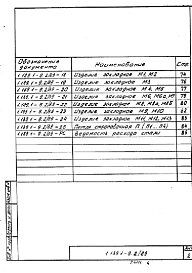 Обозначение документа Наименование Стр.
1.138.1-9.2/89-18 Изделие закладное М1, М2 74
1.138.1-9.2/89-19 Изделие закладное М3 76
1.138.1-9.2/89-20 Изделие закладное М4, М5 77
1.138.1-9.2/89-21 Изделие закладное М6, М6а, М7 78
1.138.1-9.2/89-22 Изделие закладное М8, М8а, М8б 80
1.138.1-9.2/89-23 Изделие закладное М9, М10 82
1.138.1-9.2/89-24 Изделие закладное М11, М12, М13 83
1.138.1-9.2/89-25 Петля строповочная П (П1..П4) 84
1.138.1-9.2/89-РС Ведомость расхода стали 85
1.138.1-9.2/89